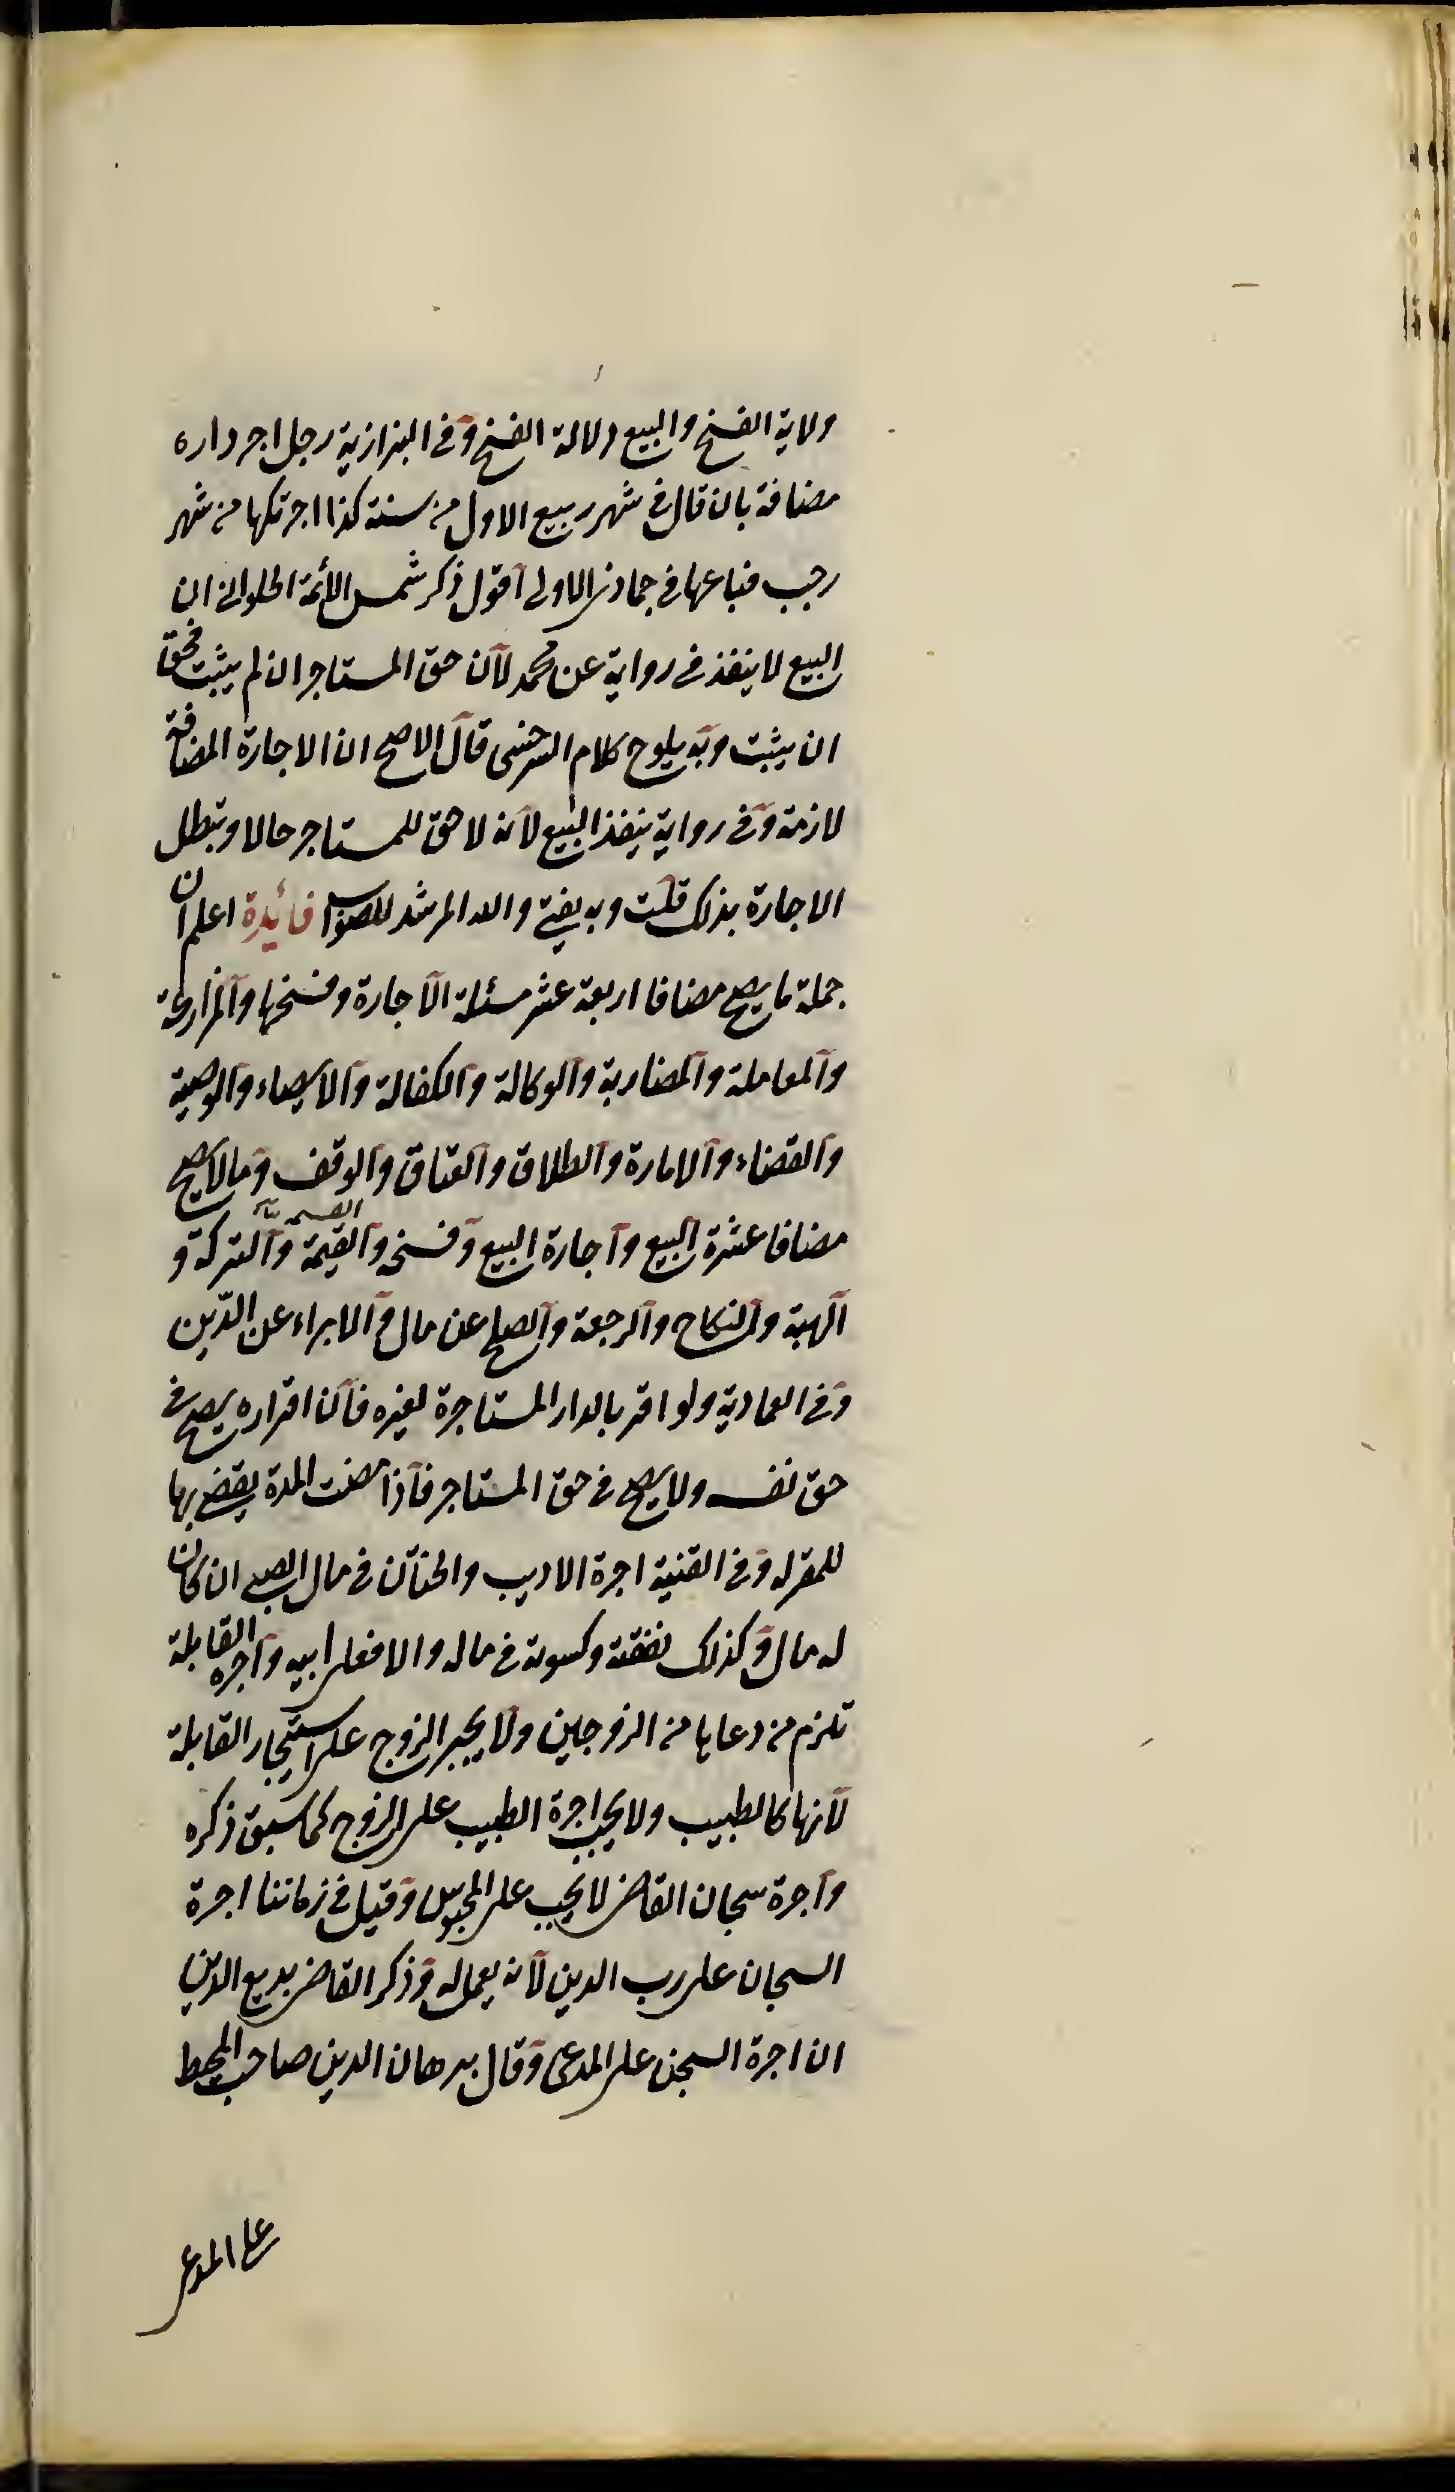 ولاية الفسخ والبيع دلالة الفسخ وفى البزازية رجل اجر داره
مضافة بان قال فى شهر ربيع الاول من سنة كذا اجرتكها من شهر
رجب فباعها فى جمادى الاولى اقول ذكر شمس الأئمة الحلوانى ان
البيع لا ينفذ فى رواية عن محمد لان حق المستاجر ان لم يثبت فحق
ان يثبت وبه يلوح كلام السرخسى قال الاصح ان الاجارة المضافة
لازمة وفى رواية ينفذ البيع لانه لا حق للمستاجر حالا وتبطل
الاجارة بذلك قلت وبه يفتى والله المرشد للصواب فائدة اعلم ان
جملة ما يصح مضافا اربعة عشر مسئلة الاجارة وفسخها والمزارعة
والمعاملة والمضاربة والوكالة والكفالة والايصاء والوصية
والقضاء والامارة والطلاق والعتاق والوقف وما لا يصح
مضافا عشرة البيع واجارة البيع وفسخه والقيمة والتركة و
القسمة
الهبة والنكاح والرجعة والصلح عن مال والابراء عن الدين
وفى العمادية ولو اقر بالدار المستاجرة لغيره فان اقراره يصح فى
حق نفسه ولا يصح فى حق المستاجر فاذا مضت المدة يقضى بها
للمقر له وفى القنية اجرة الاديب والختان فى مال الصبى ان كان
له مال وكذلك نفقته وكسوته فى ماله والا فعلى ابيه واجره القابلة
تلزم من دعاها من الزوجين ولا يجبر الزوج على استيجار القابلة
لانها كالطبيب ولا يجب اجرة الطبيب على الزوج كما سبق ذكره
واجرة سجان القاضى لا يجب على المحبوس وقيل فى زماننا اجرة
السجان على رب الدين لانه يعمل له وذكر القاضى بديع الدين
ان اجرة السجن على المدعى وقال برهان الدين صاحب المحيط
على المدعى